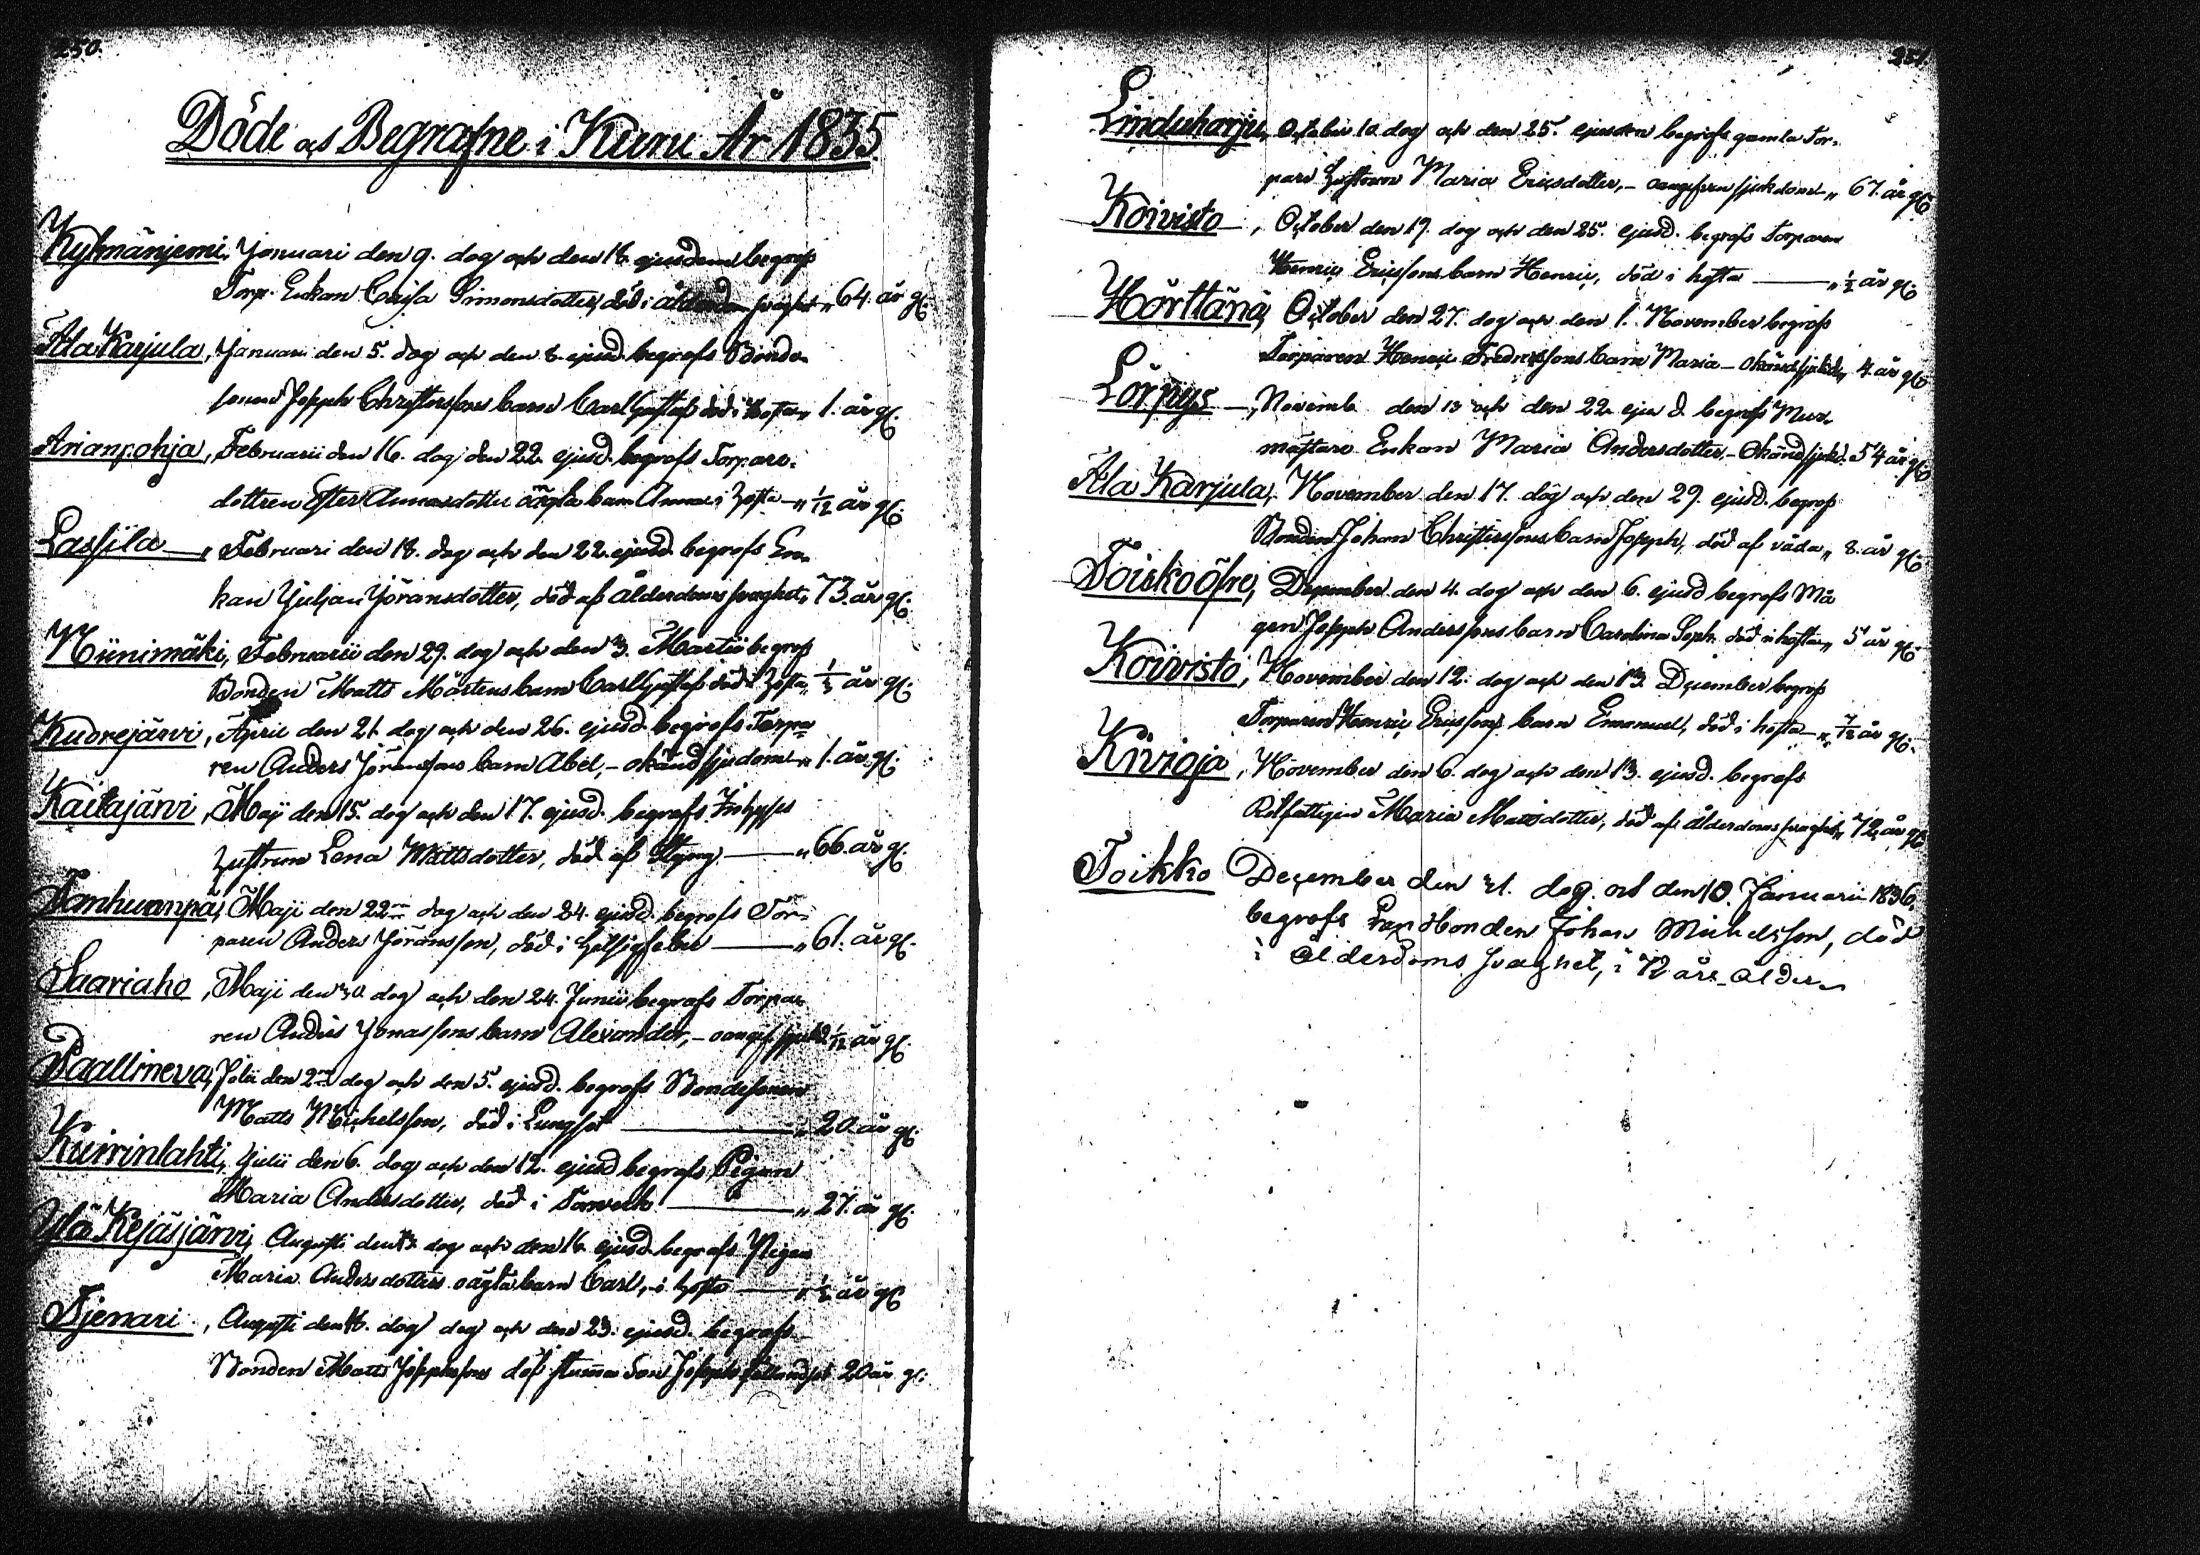 250.
Döde och Begrafne i Kuru År 1835.
Kyrmäniemi, Januari den 9. dag och den 18. ejusdem begrofs
Torp. Enkan Cajsa Simonsdotter, död i ålderdoms svaghet „ 64. år gl:
Ala Karjula, Januari den 5. dag och den 8. ejusd. begrofs Bonde
sonens Joseph Christerssons barn Carl Gustaf död i hosta „ 1. år gl:
Arianpohja, Februarii den 16. dag den 22. ejusd. begrofs Torpare
dottren Ester Annasdotter oägta barn Anna i hosta — „ 1/12 år gl:
Lassila —, Februari den 18. dag och den 22. ejusd. begrofs En-
kan Juljan Jöransdotter, död af ålderdoms svaghet „ 73. år gl:
Niinimäki, Februarii den 29. dag och den 3. Martii begrofs
Bonden Matts Mårtens barn Carl Gustaf död i hosta „ 1/2 år gl:
Kudrejärvi, April den 21. dag och den 26. ejusd. begrofs Torpa-
ren Anders Jöranssons barn Abel, – okänd sjukdom — „ 1. år gl:
Kaitajärvi, Maji den 15. dag och den 17. ejusd. begrofs Inhyses
hustrun Lena Mattsdotter, död af Styng — „ 66. år gl:
Tanhuanpä, Maji den 22. dag och den 24. ejusd. begrofs Tor-
paren Anders Jöransson, död i — „ 61. år gl:
Saariaho, Maji den 30. dag och den 24. Junii begrofs Torpa-
ren Anders Jonassons barn Alexander, – oangif. sjukd. 1/12 år gl:
Paallineva, Julii den 2. dag och den 5. ejusd. begrofs Bondesonen
Matts Michelsson, död i Lungsot — „ 20. år gl:
Kuirinlahti, Julii den 6. dag och den 12. ejusd. begrofs Pigan
Maria Andersdotter, död i — „ 27. år gl:
Ylä Kejäsjärvi, Augusti den 13. dag och den 16. ejusd. begrofs Pigan
Maria Andersdotters oägta barn Carl, – i hosta — „ 1/2 år gl:
Tjenari, Augusti den 16. dag dag och den 23. ejusd. begrofs
Bonden Matts Josephssons döf stumma Son Joseph fallandsot 20 år gl:
251.
Linduharju, October 10. dag och den 25. ejusdem begrofs gamla Tor-
pare hustrun Maria Ericsdotter, – oangifven sjukdom „ 67. år gl:
Koivisto —, October den 19. dag och den 25. ejusd. begrofs Torparen
Henric Ericssons barn Henric, död i hosta — „ 1/2 år gl:
Hörttänä, October den 27. dag och den 1. November begrofs
Torparen Henric Fredricssons barn Maria – okänd sjukd. „ 4. år gl:
Lörpys —, Novemb. den 13 och den 22. ejusd. begrofs Mur-
mästare Enkan Maria Andersdotter, – Okänd sjukd. 54 år gl:
Ala Karjula, November den 17. dag och den 29. ejusd. begrofs
Bonden Johan Christerssons barn Joseph, död af våda „ 8. år gl:
Toickoöfre, December den 4. dag och den 6. ejusd begrofs Må-
gen Joseph Anderssons barn Carolina Soph. död i hosta „ 5 år gl:
Koivisto, November den 12. dag och den 13. December begrofs
Torparen Henric Ericssons barn Emanuel, död i hosta — „ 7/12 år gl:
Kivioja, November den 6. dag och den 13. ejusd. begrofs
Rotfattigen Maria Mattsdotter, död af ålderdoms svaghet „ 72. år gl:
Toikko December den 31. dag. och den 10. Januarii 1836.
begrofs Bonden Johan Michelsson, död
i ålderdoms svaghet, i 72 års ålder